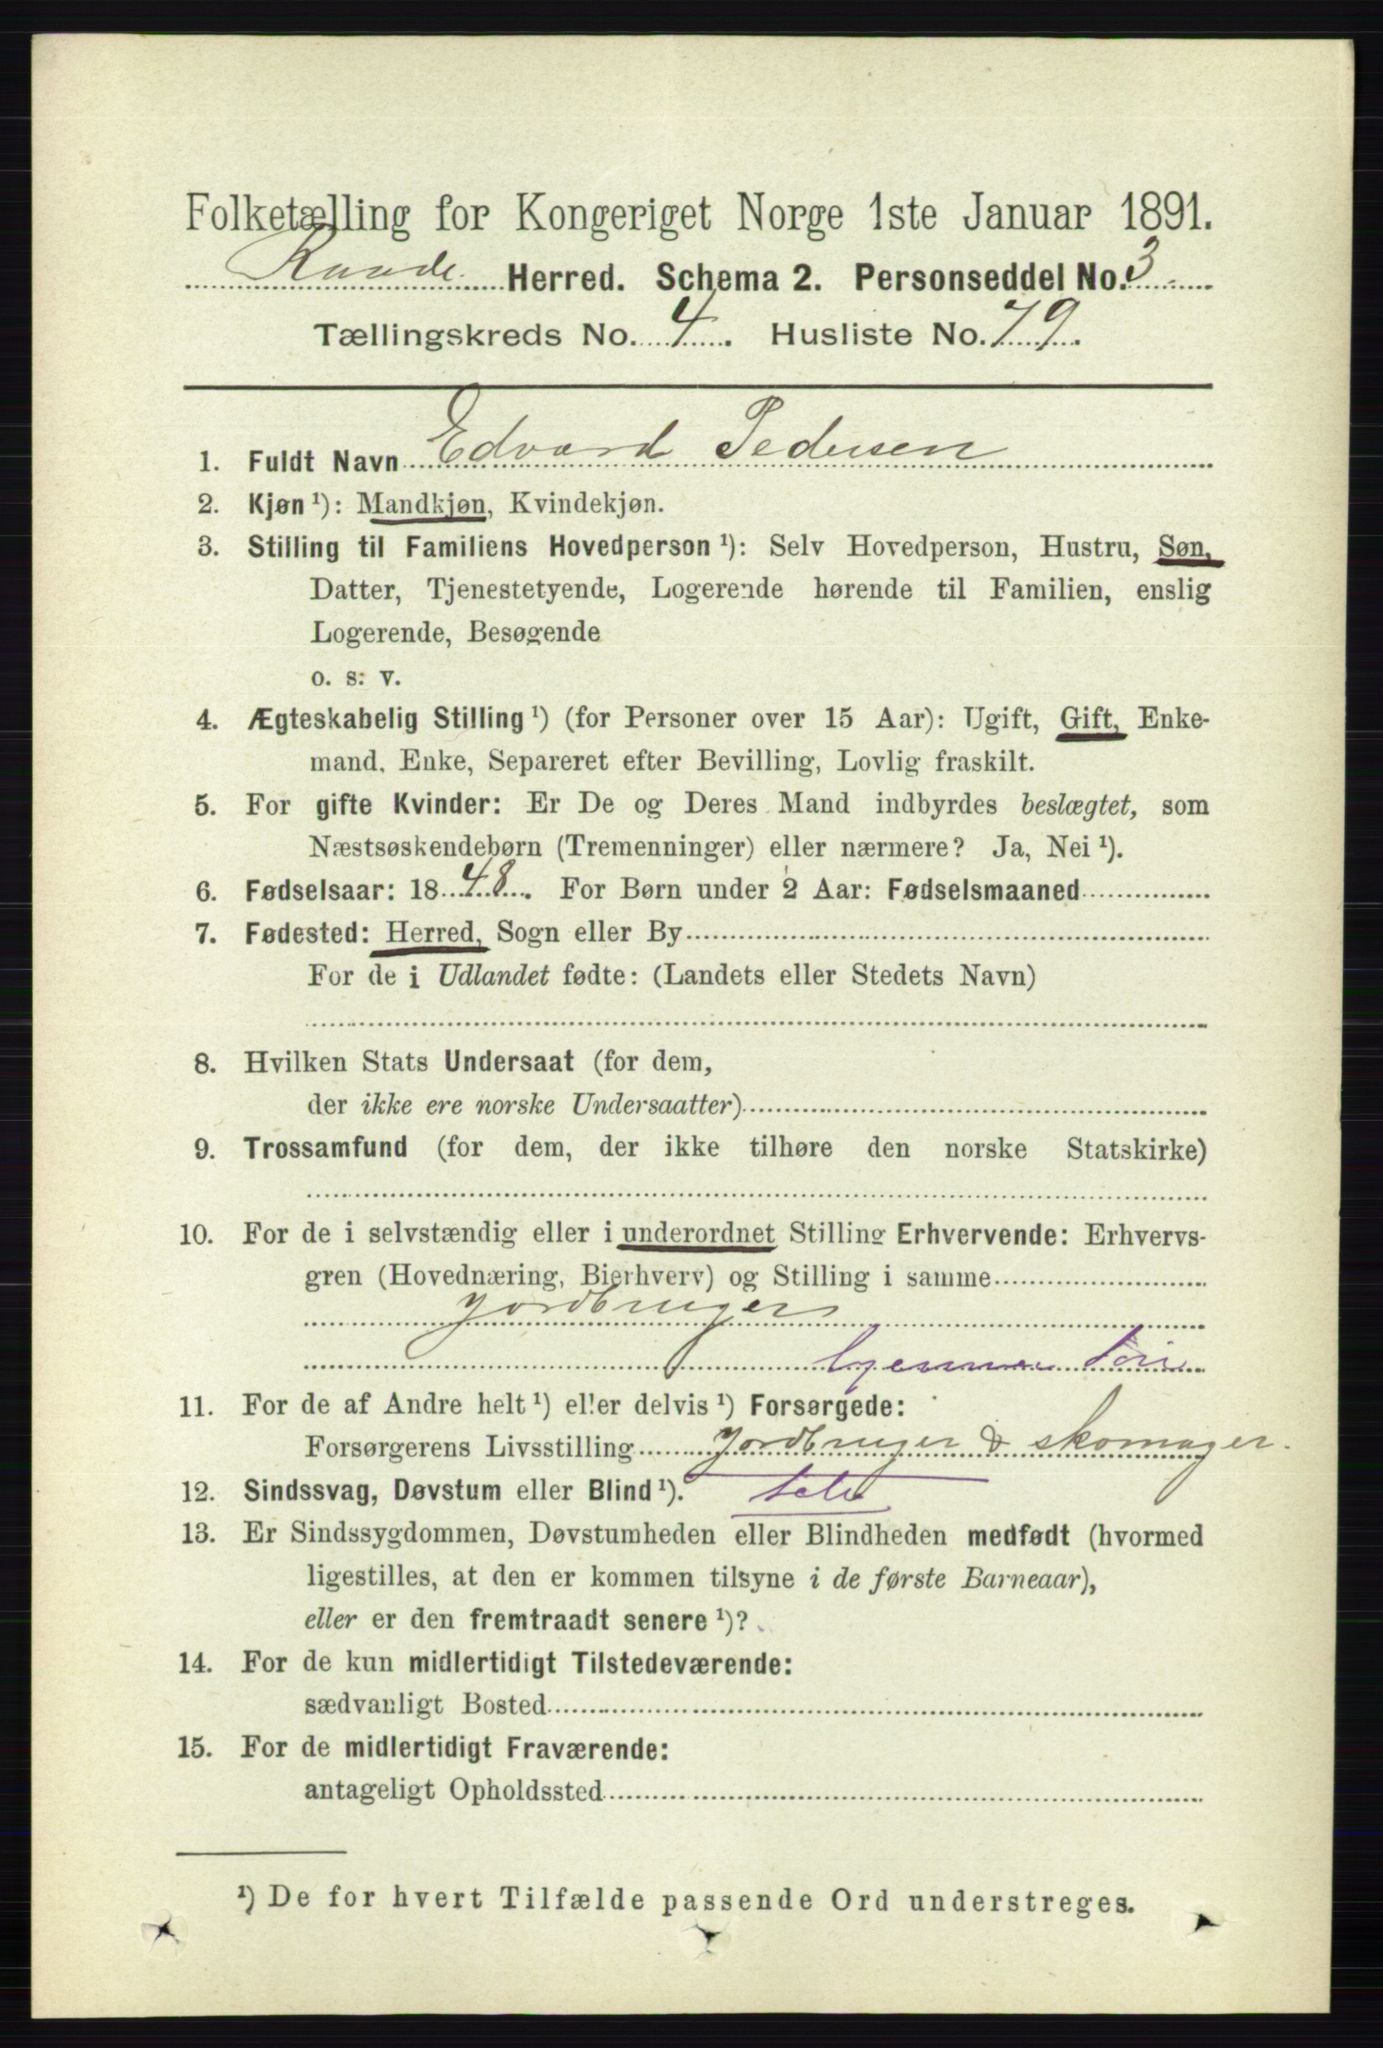 Folketælling for Kongeriget Norge 1ste Januar 1891.
Raade Herred. Schema 2. Personseddel No. 3
Tællingskreds No. 4. Husliste No. 79.
1. Fuldt Navn Edvard Pedersen
2. Kjøn ¹): Mandkjøn, Kvindekjøn.
3. Stilling til Familiens Hovedperson ¹): Selv Hovedperson, Hustru, Søn,
Datter, Tjenestetyende, Logerende hørende til Familien, enslig
Logerende, Besøgende
o. s: v.
4. Ægteskabelig Stilling ¹) (for Personer over 15 Aar): Ugift, Gift, Enke-
mand, Enke, Separeret efter Bevilling, Lovlig fraskilt.
5. For gifte Kvinder: Er De og Deres Mand indbyrdes beslægtet, som
Næstsøskendebørn (Tremenninger) eller nærmere? Ja, Nei ¹).
6. Fødselsaar: 1848. For Børn under 2 Aar: Fødselsmaaned
7. Fødested: Herred, Sogn eller By
For de i Udlandet fødte: (Landets eller Stedets Navn)
8. Hvilken Stats Undersaat (for dem,
der ikke ere norske Undersaatter)
9. Trossamfund (for dem, der ikke tilhøre den norske Statskirke)
10. For de i selvstændig eller i underordnet Stilling Erhvervende: Erhvervs-
gren (Hovednæring, Bierhverv) og Stilling i samme
Jordbruger
11. For de af Andre helt ¹) eller delvis ¹) Forsørgede:
Forsørgerens Livsstilling Jordbruger & skomager.
12. Sindssvag, Døvstum eller Blind ¹).
13. Er Sindssygdommen, Døvstumheden eller Blindheden medfødt (hvormed
ligestilles, at den er kommen tilsyne i de første Barneaar),
eller er den fremtraadt senere ¹)?
14. For de kun midlertidigt Tilstedeværende:
sædvanligt Bosted
15. For de midlertidigt Fraværende:
antageligt Opholdssted
¹) De for hvert Tilfælde passende Ord understreges.